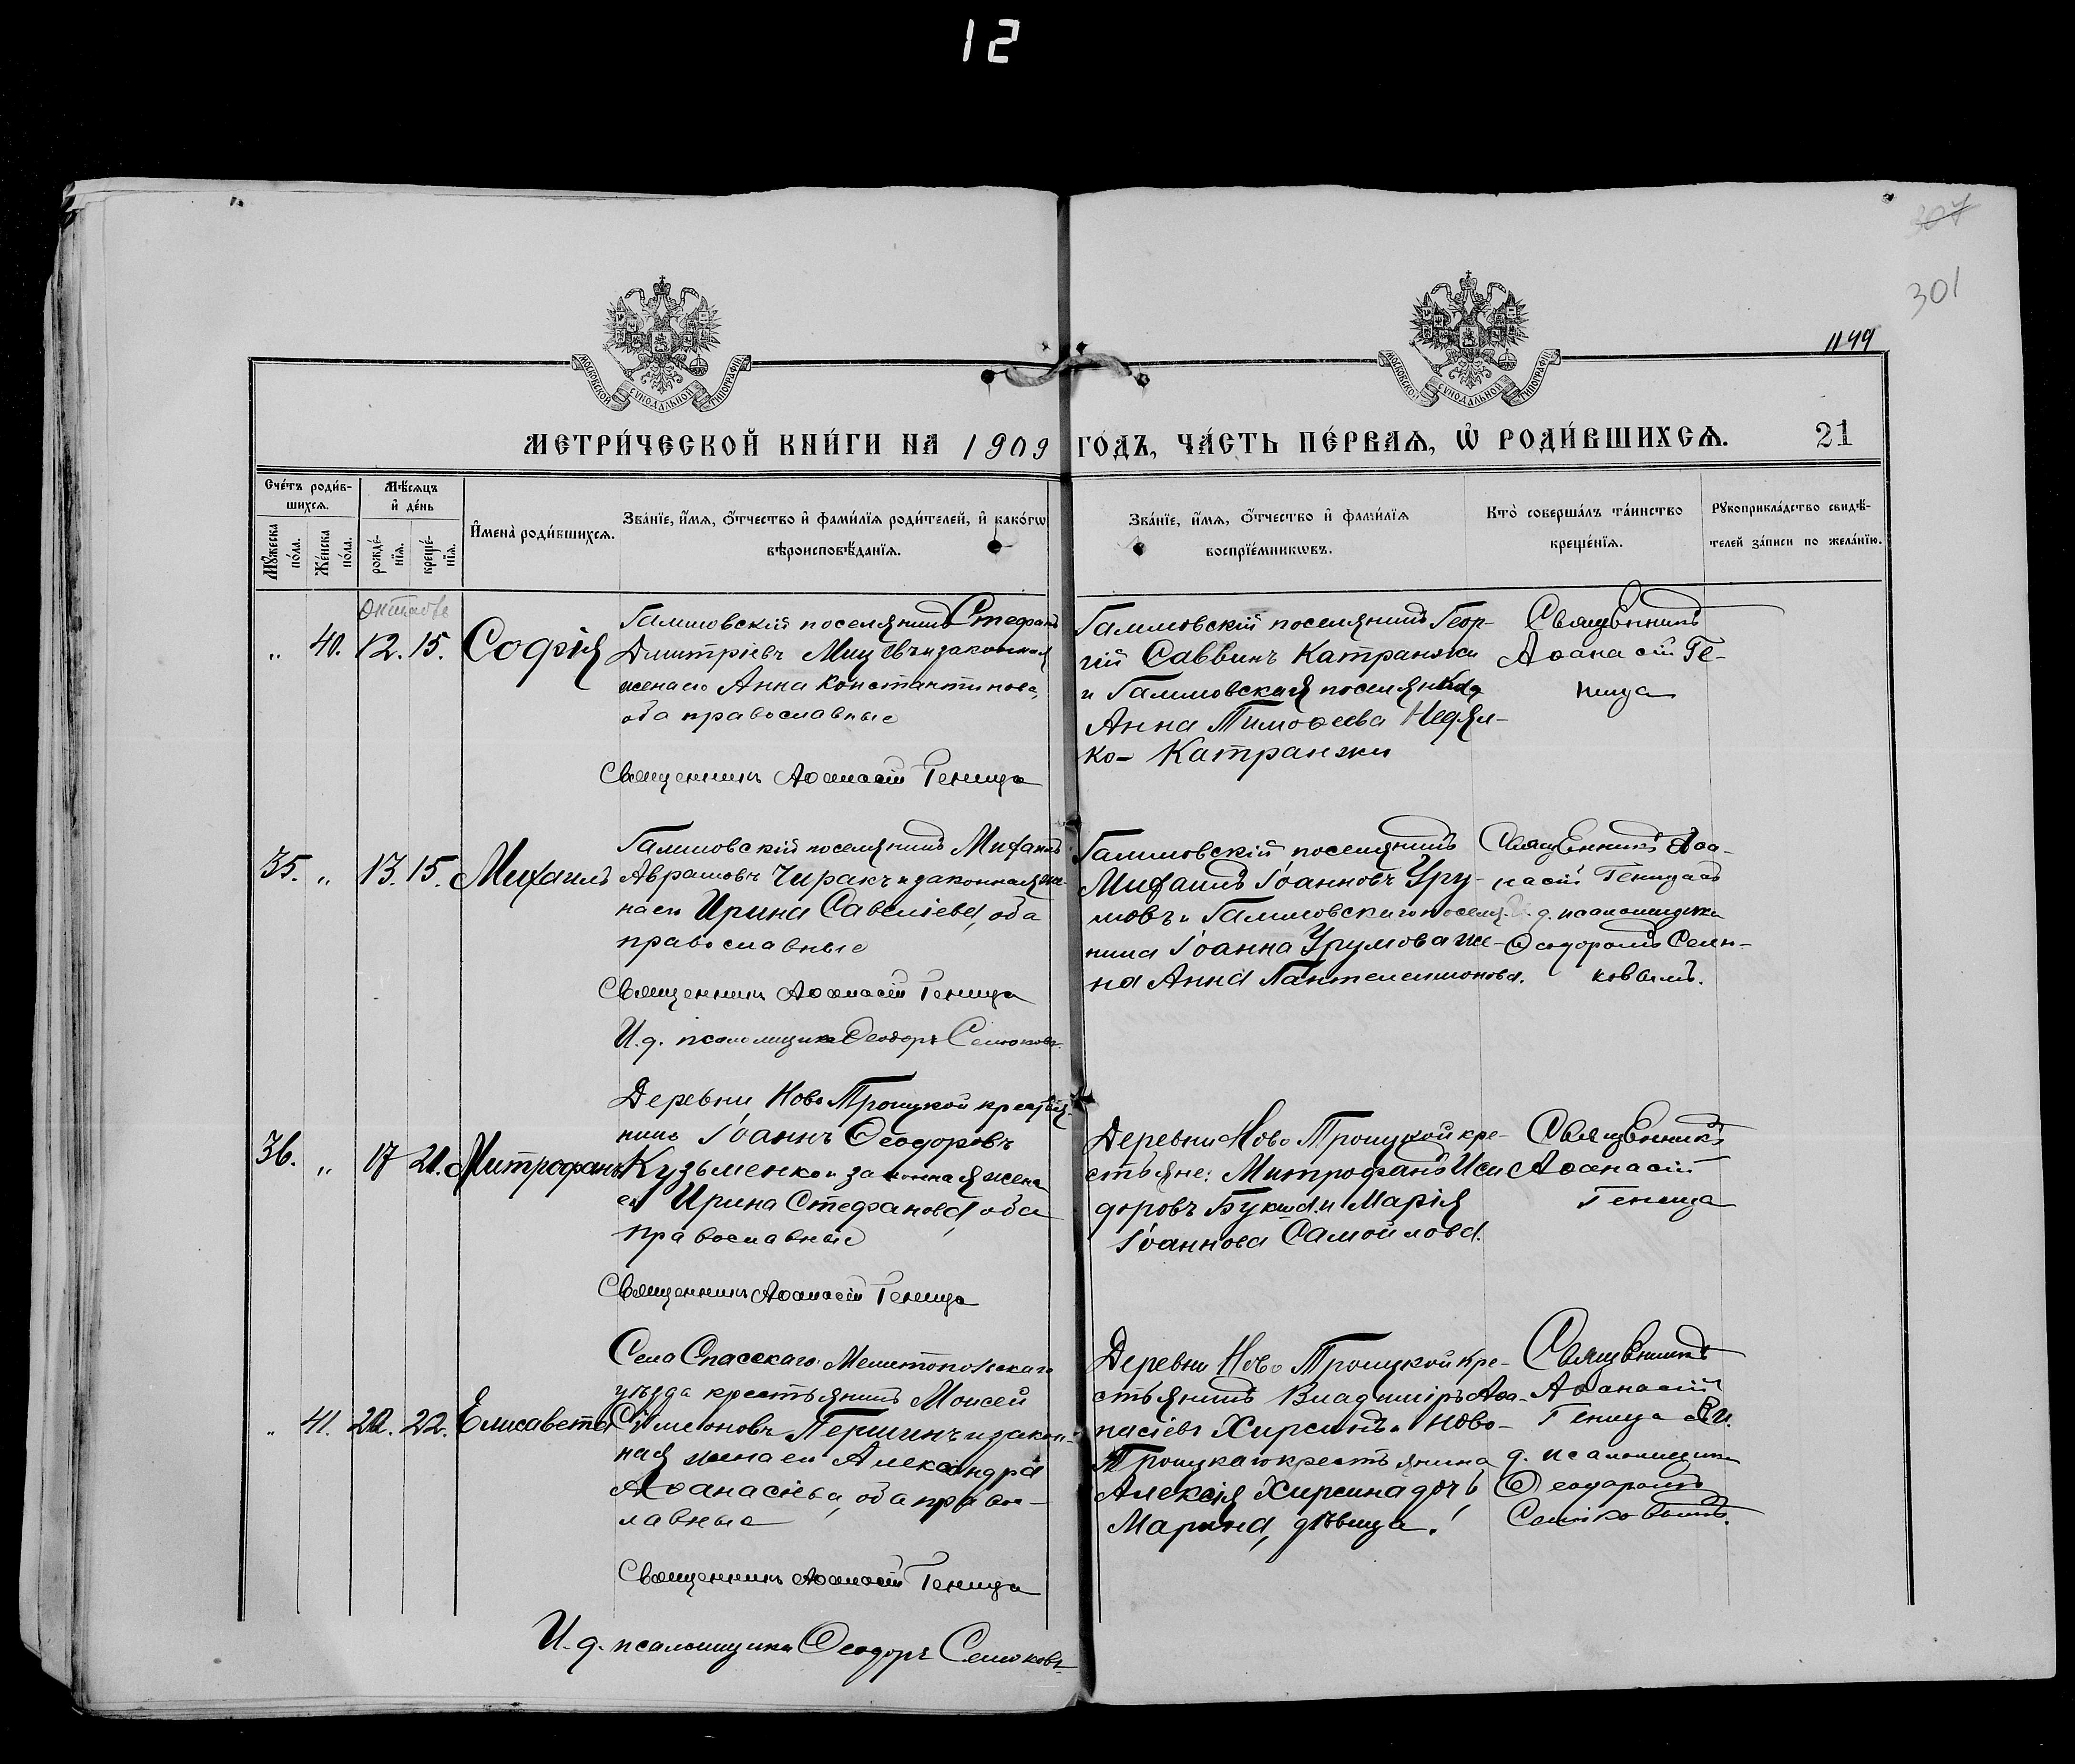 12
307
301
1144
МОСКОВСКОЙ СѴНОДАЛЬНОЙ ТИПОГРАФІИ
МОСКОВСКОЙ СѴНОДАЛЬНОЙ ТИПОГРАФІИ
МЕТРИ́ЧЕСКОЙ КНИ́ГИ НА 1909 ГО́ДЪ, ЧА́СТЬ ПЕ́РВАѦ, Ѡ҆ РОДИ́ВШИХСѦ. 21
Сче́тъ роди́в-
шихсѧ.
Мꙋ́жеска по́ла.
Же́нска по́ла.
Мѣ́сѧцъ
и҆ де́нь
рожде́-
нїѧ.
креще́-
нїѧ.
И҆мена̀ роди́вшихсѧ.
Зва́нїе, и҆́мѧ, ѻ҆́тчество и҆ фами́лїѧ роди́телей, и҆ како́гѡ
вѣроисповѣ́данїѧ.
Зва́нїе, и҆́мѧ, ѻ҆́тчество и҆ фами́лїѧ
воспрїе́мникѡвъ.
Кто̀ соверша́лъ та́инство
креще́нїѧ.
Рꙋкоприкла́дство свидѣ́-
телей за́писи по жела́нїю.
Октябрь
" 40. 12. 15. Софія
Гамовскій поселянинъ Стефанъ
Дмитріевъ Мицевъ и законная
жена его Анна Константинова,
оба православные
Священникъ Аѳанасій Геница
Гамовскій поселянинъ Геор-
гій Саввинъ Катранжи
и Гамовская поселянка
Анна Тимоѳеева Недял-
ко- Катранжи
Священникъ
Аѳанасій Ге-
ница
35. " 13. 15. Михаилъ
Гамовскій поселянинъ Михаилъ
Аврамовъ Чиракъ и законная же-
на его Ирина Савеліева, оба
православные
Священникъ Аѳанасій Геница
И. д. псаломщика Ѳеодоръ Семиковъ
Гамовскій поселянинъ
Михаилъ Іоанновъ Уру-
мовъ и Гамовскаго поселя-
нина Іоанна Урумова же-
на Анна Пантелеимонова.
Священникъ Аѳа-
насій Геница съ
и. д. псаломщика
Ѳеодоромъ Семи-
ковымъ.
36. " 17 21. Митрофанъ
Деревни Ново Троицкой крестья-
нинъ Іоаннъ Ѳеодоровъ
Кузьменко и законная жена
его Ирина Стефанова, оба
православные
Священникъ Аѳанасій Геница
Деревни Ново Троицкой кре-
стьяне: Митрофанъ Иси
доровъ Букша и Марія
Іоаннова Самойлова.
Священникъ
Аѳанасій
Геница
" 41. 20. 22. Елисавета
Села Спасскаго Мелитопольскаго
уѣзда крестьянинъ Моисей
Симеоновъ Першинъ и закон-
ная жена его Александра
Аѳанасіева, оба право-
славные
Священникъ Аѳанасій Геница
И. д. псаломщика Ѳеодоръ Семиковъ
Деревни Ново Троицкой кре-
стьянинъ Владиміръ Аѳа-
насіевъ Хирсинъ и Ново-
Троицкаго крестьянина
Алексія Хирсина дочь
Марина, дѣвица.
Священникъ
Аѳанасій
Геница съ и.
д. псаломщика
Ѳеодоромъ
Семиковымъ.